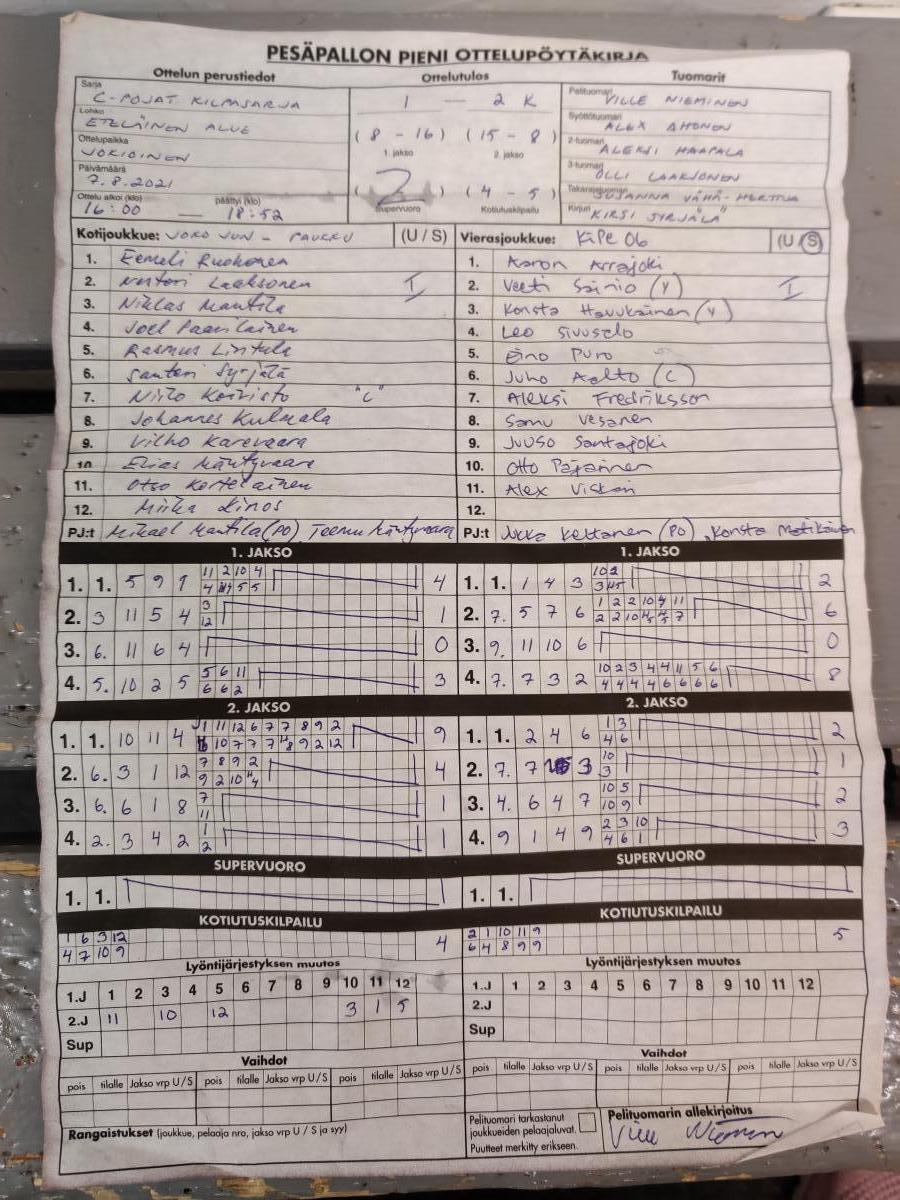 PESÄPALLON PIENI OTTELUPÖYTÄKIRJA
Ottelun perustiedot Ottelutulos Tuomarit
Sarja
C-POJAT KILPASARJA
Lohko
ETELÄINEN ALUE
Ottelupaikka
JOKIOINEN
Päivämäärä
7.8.2021
Ottelu alkoi (klo) päättyi (klo)
16:00 — 18:52
1 — 2 K
(8 - 16) (15 - 8)
1. jakso 2. jakso
(2) (4 - 5)
Supervuoro Kotiutuskilpailu
Pelituomari VILLE NIEMINEN
Syöttötuomari ALEX AHONEN
2-tuomari ALEKSI HAAPALA
3-tuomari OLLI LAAKSONEN
Takarajatuomari SUSANNA VÄHÄ-HERTTUA
Kirjuri KIRSI SYRJÄLÄ
Kotijoukkue: JOKO JUN - PAUKKU (U / S)
1. Eemeli Ruohonen
2. Laaksonen I
3. Niklas Mantila
4. Joel
5. Rasmus Lintula
6. Santeri Syrjälä
7. Niilo Koivisto "C"
8. Johannes Kulmala
9. Vilho Karevaara
10. Elias Mäntyvaara
11. Otso Kortelainen
12. Miika Linos
PJ:t Mikael Mantila (PO), Teemu Mäntyvaara
Vierasjoukkue: KiPe 06 (U / S)
1. Aaron Arrajoki
2. Veeti Sainio (V) I
3. Konsta Havukainen (V)
4. Leo Sivusalo
5. Eino Puro
6. Juho Aalto (C)
7. Aleksi Fredriksson
8. Samu Vesanen
9. Juuso Santajoki
10. Otto Pajarinen
11. Alex
12.
PJ:t Jukka Kettanen (PO), Konsta Matikainen
1. JAKSO
1. 1. 5 9 9 11 2 10 4 4
2. 3 11 5 4 3 1
12
3. 6. 11 6 4 0
4. 5. 10 2 5 5 6 11 3
6 6 2
1. JAKSO
1. 1. 1 4 3 10 2 2
2. 7. 5 7 6 1 2 2 10 4 11 6
3. 9. 11 10 6 0
4. 7. 7 3 2 10 2 3 4 4 11 5 6 8
4 4 4 4 6 6 6 6
2. JAKSO
1. 1. 10 11 4 1 11 12 6 7 7 8 9 2 9
10 7 7 7 8 9 2 12
2. 6. 3 1 12 7 8 9 2 4
9 2 10 4
3. 6. 6 1 8 7 1
11
4. 2. 3 4 2 1 1
2
2. JAKSO
1. 1. 2 4 6 1 3 2
4 6
2. 7. 7 3 10 1
3
3. 4. 6 4 7 10 5 2
10 9
4. 9 1 4 9 2 3 10 3
4 6 1
SUPERVUORO
1. 1.
SUPERVUORO
1. 1.
KOTIUTUSKILPAILU
1 6 3 12 4
4 7 10 9
KOTIUTUSKILPAILU
2 1 10 11 9 5
6 4 8 9 9
Lyöntijärjestyksen muutos
1.J 1 2 3 4 5 6 7 8 9 10 11 12
2.J 11 10 12 3 1 5
Sup
Lyöntijärjestyksen muutos
1.J 1 2 3 4 5 6 7 8 9 10 11 12
2.J
Sup
Vaihdot
pois tilalle Jakso vrp U / S pois tilalle Jakso vrp U / S pois tilalle Jakso vrp U / S
Vaihdot
pois tilalle Jakso vrp U / S pois tilalle Jakso vrp U / S pois tilalle Jakso vrp U / S
Rangaistukset (joukkue, pelaaja nro, jakso vrp U / S ja syy)
Pelituomari tarkastanut
joukkueiden pelaajaluvat.
Puutteet merkitty erikseen.
Pelituomarin allekirjoitus
Ville Nieminen